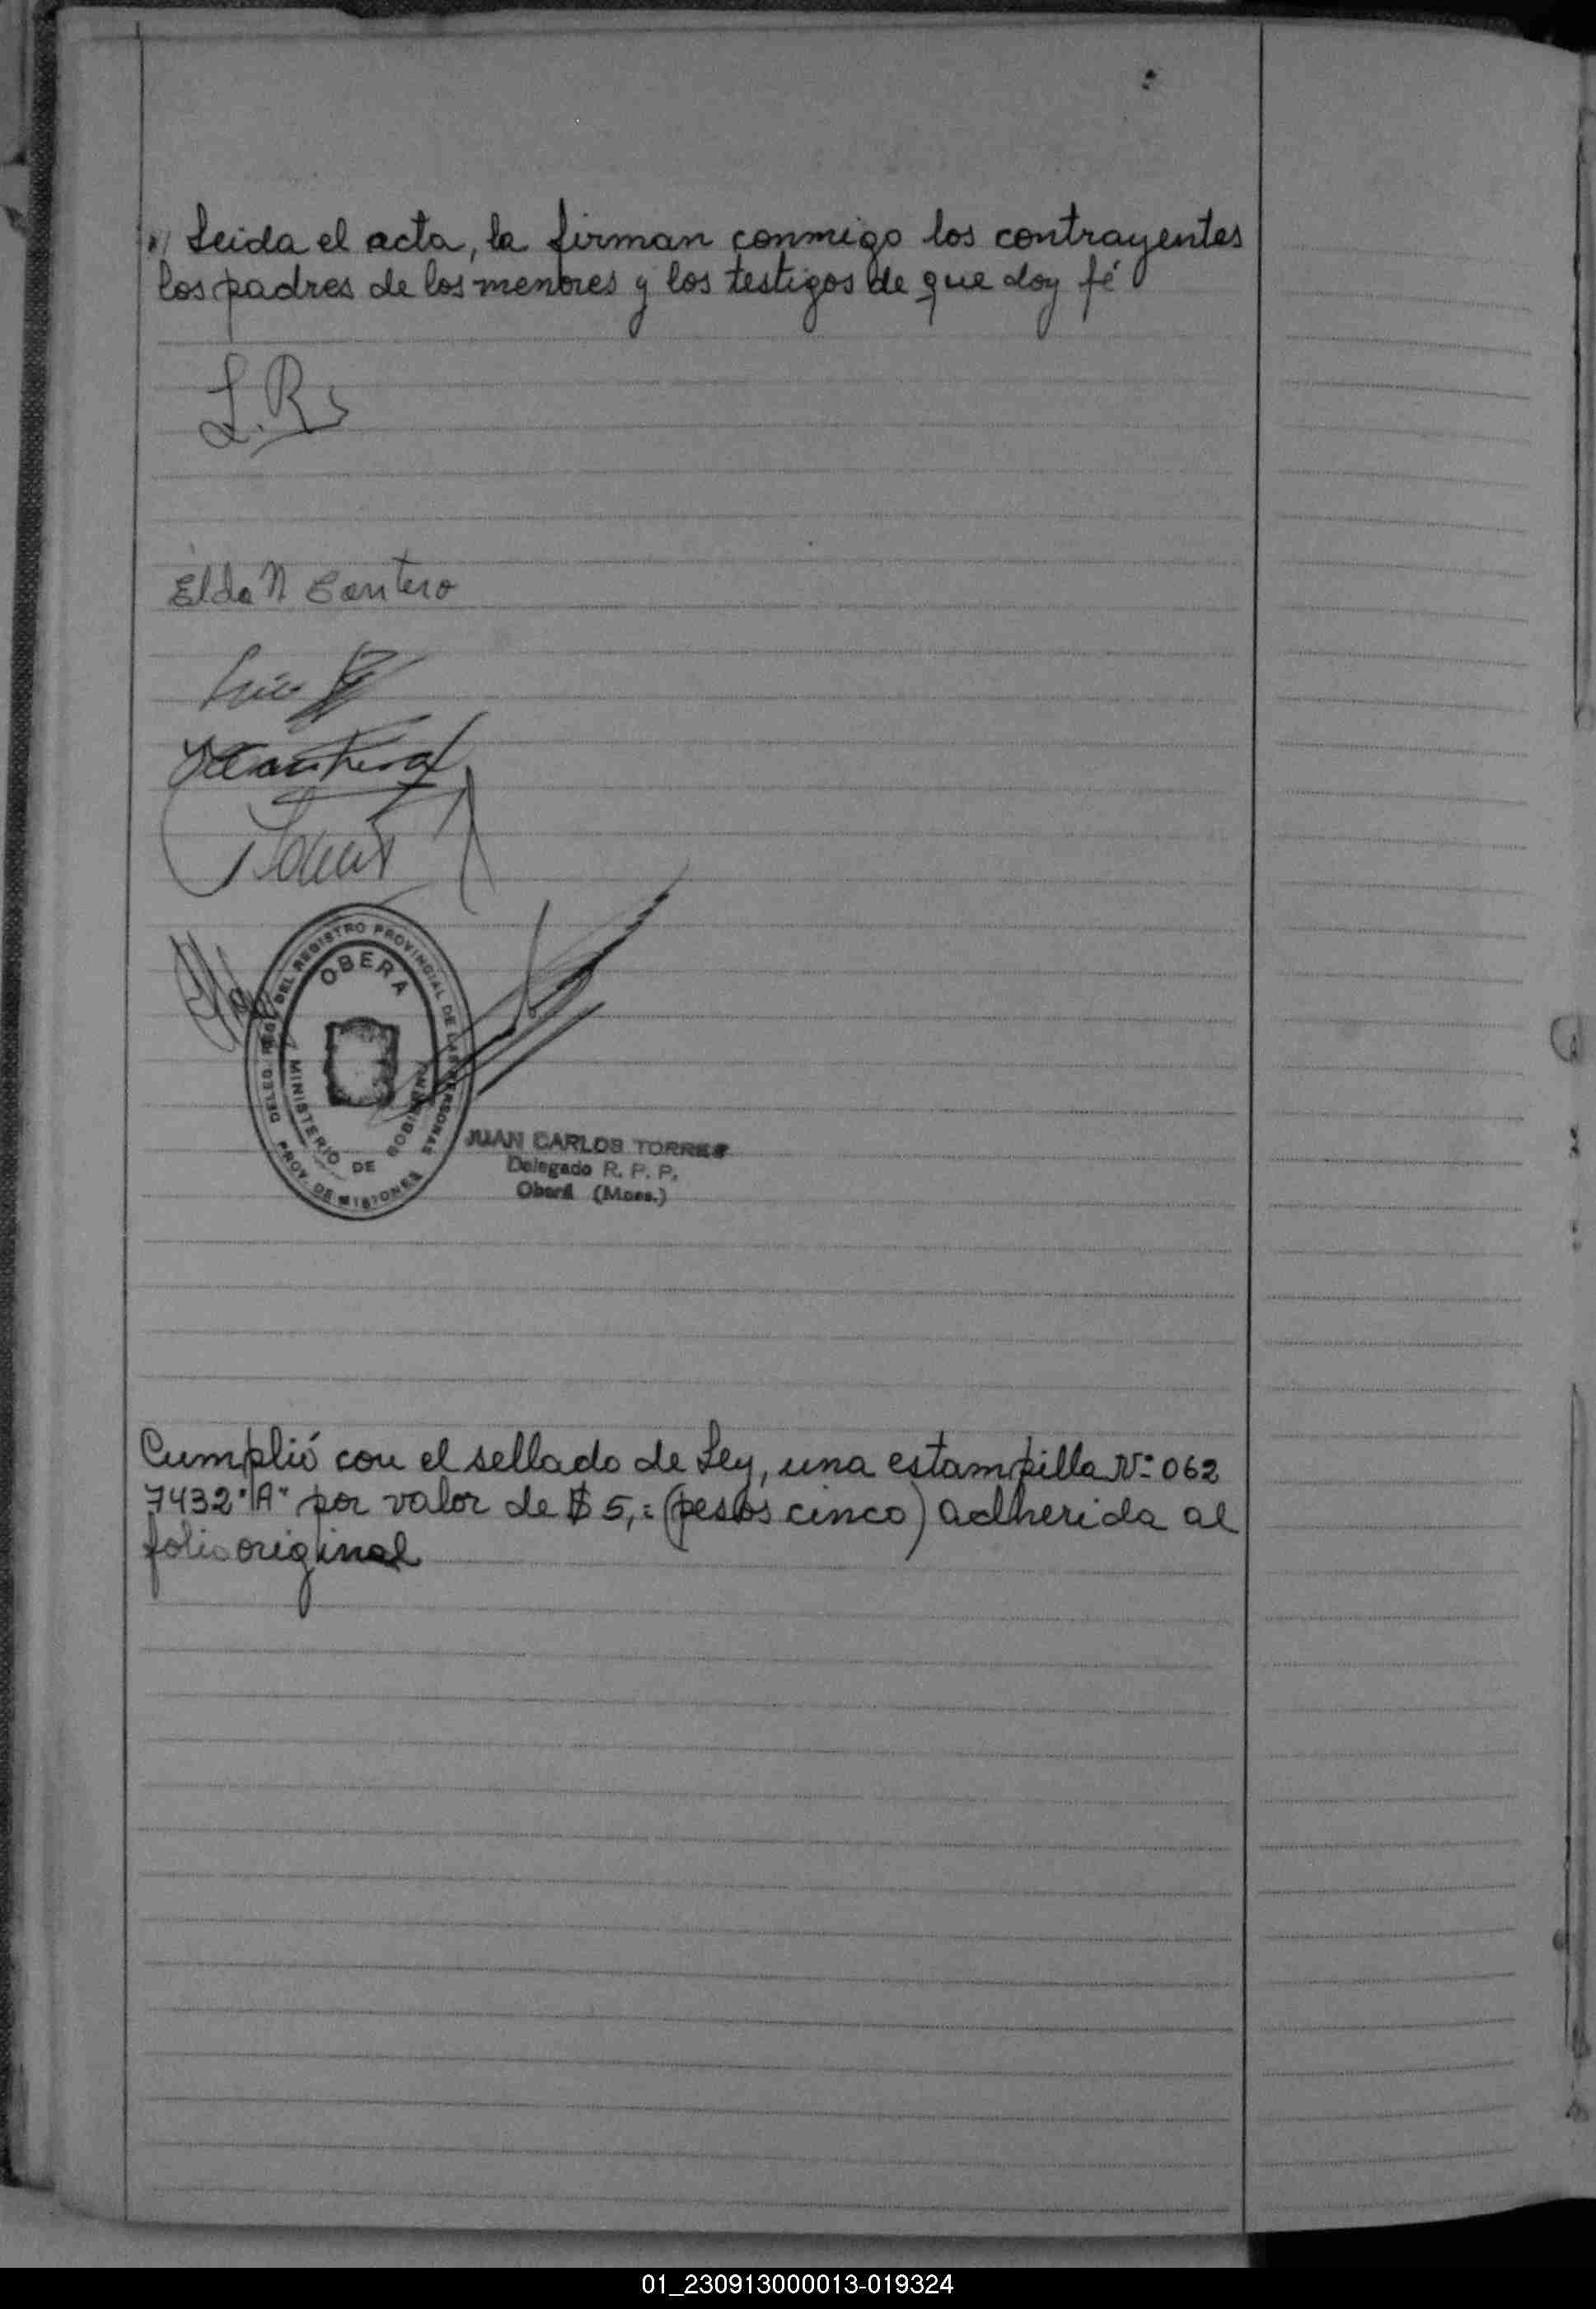 // Leida el acta, la firman conmigo los contrayentes
los padres de los menores y los testigos de que doy fé
L.R
Elda N Cantero
DELEG. DEL REGISTRO PROVINCIAL DE LAS PERSONAS
OBERA
MINISTERIO DE GOBIERNO
PROV. DE MISIONES
JUAN CARLOS TORRES
Delegado R. P. P.
Oberá (Mnes.)
Cumplió con el sellado de Ley, una estampilla Nº 062
7432 "A" por valor de $ 5,= (pesos cinco) adherida al
folio original
01_230913000013-019324